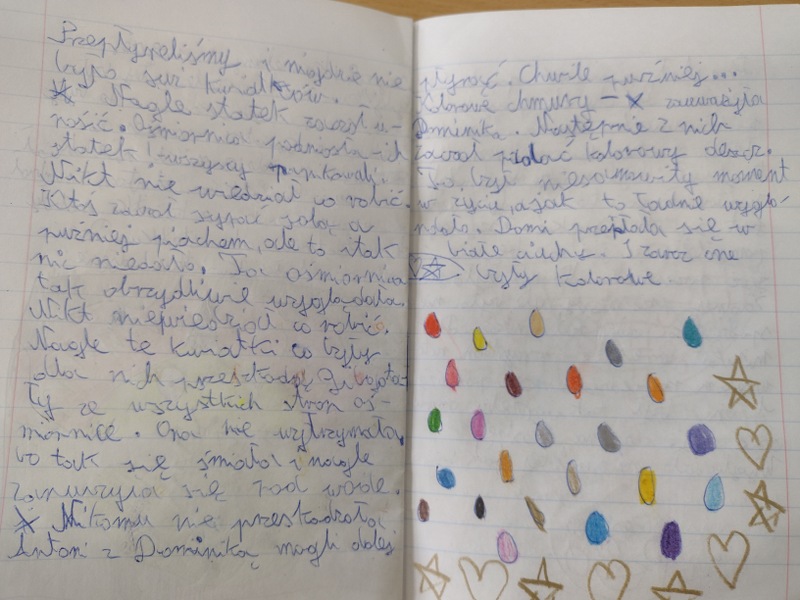 Przepłyneliśmy i nigdzie nie
było już kwiatków.
Nagle statek zaczoł u-
nosić. Ośmiornica podniosła ich
statek! wszyscy panikowali.
Nikt nie wiedział co robić.
Ktoś zaczoł sypać solą a
puźniej piachem, ale to i tak
nic niedało. Ta ośmiornica
tak obrzydliwie wyglądała.
Nikt niewiedział co robić.
Nagle te kwiatki co były
dla nich przeszkodą gilgota
ły ze wszystkich stron oś-
miornice. Ona nie wytrzymała
bo tak się śmiała i nagle
zanurzyła się pod wode.
Nikomu nie przeszkadzała
Antoni z Dominiką mogli dalej
płynąć. Chwile puźniej...
Kolorowe chmury – zauważyła
Dominika. Następnie z nich
zaczoł padać kolorowy deszcz.
To był niesamowity moment
w życiu, a jak to ładnie wyglą-
dało. Domi przebrała się w
białe ciuchy. I zaraz one
były kolorowe.